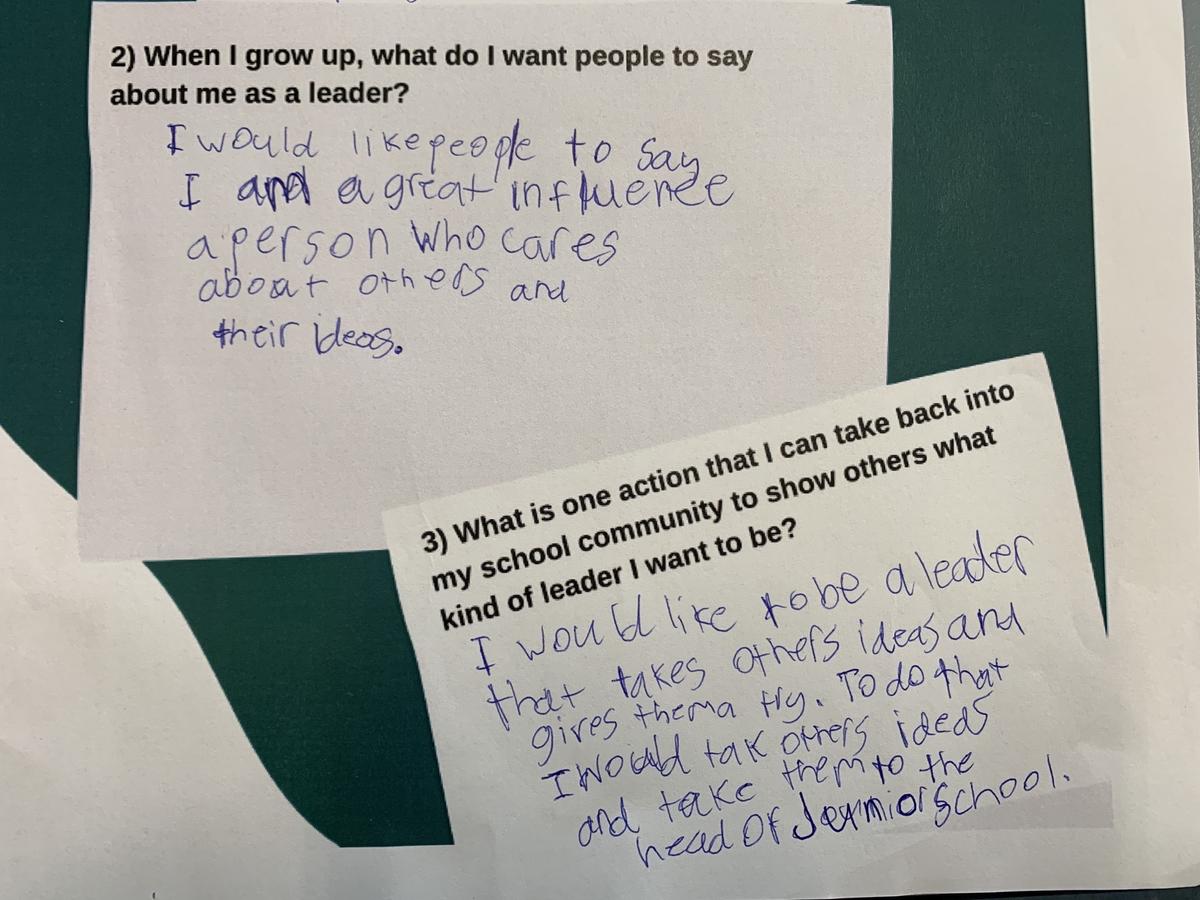 2) When I grow up, what do I want people to say
about me as a leader?
I would like people to say
I and a great influence
a person who cares
about others and
their ideas.
3) What is one action that I can take back into
my school community to show others what
kind of leader I want to be?
I would like to be a leader
that takes others ideas and
gives them a try. To do that
I would tak others ideas
and take them to the
head of school.